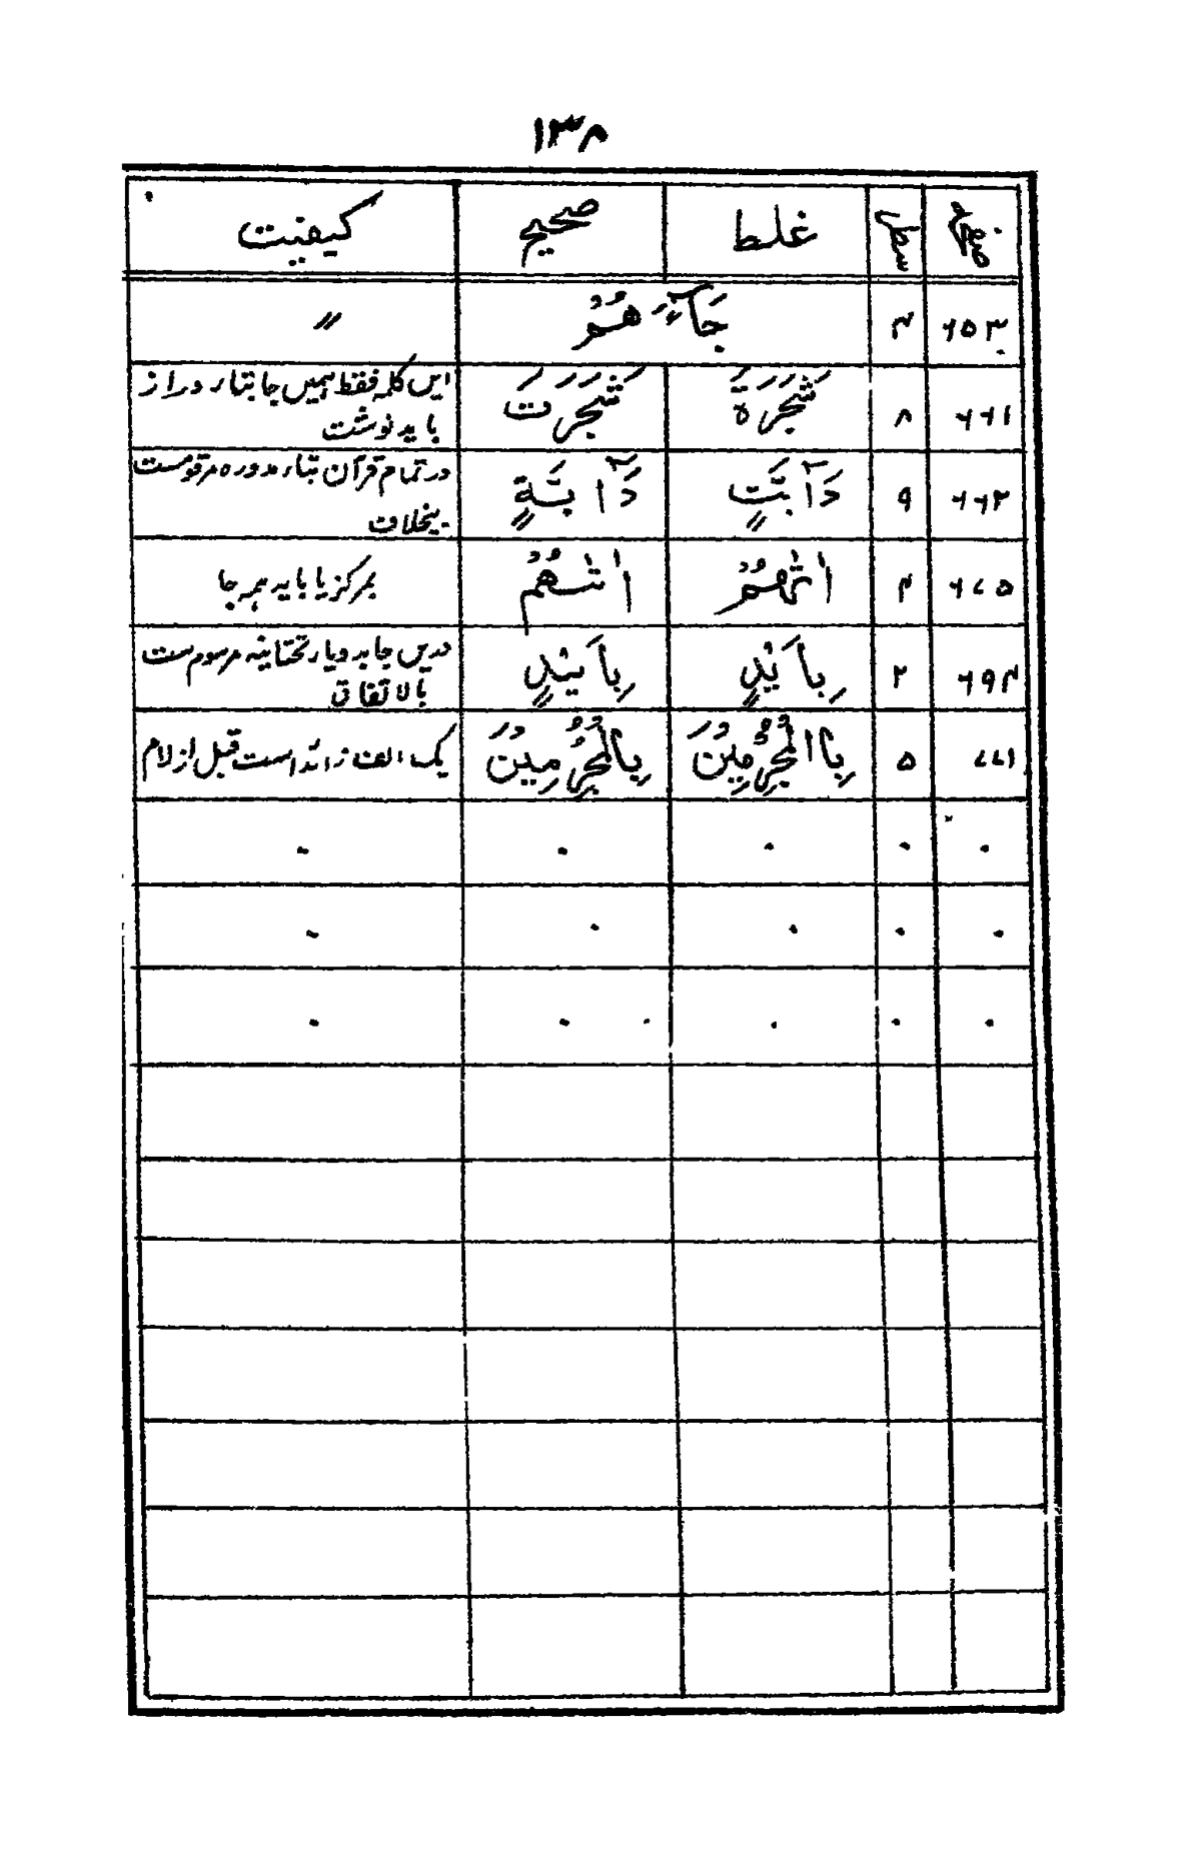 ۱۳۸
صفحہ سطر غلط صحیح کیفیت
۶۵۳ ۴ جَآءَهُمُ 〃
۶۶۱ ۸ شَجَرَةَ شَجَرَتَ ایں کلمہ فقط ہمیں جا بتاء دراز
باید نوشت
۶۶۲ ۹ دَآبَّتٍ دَآبَّةٍ در تمام قرآن بتاء مدورہ مرقومست
بیخلاف
۶۷۵ ۴ اٰثٰهُمُ اٰتٰىهُمْ بمرکز یا باید ہر جا
۶۹۴ ۲ بِاَيْدٍ بِاَيْىدٍ دریں جا بدو یاء تحتانیہ مرسوم ست
بالاتفاق
۷۷۱ ۵ بِاالْمُجْرِمِيْنَ بِالْمُجْرِمِيْنَ یک الف زائد است قبل از لام